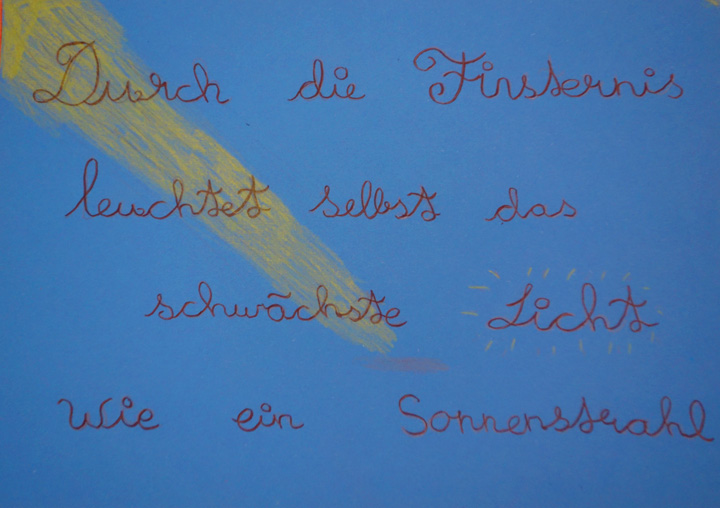 Durch die Finsternis
leuchtet selbst das
schwächste Licht
Wie ein Sonnenstrahl